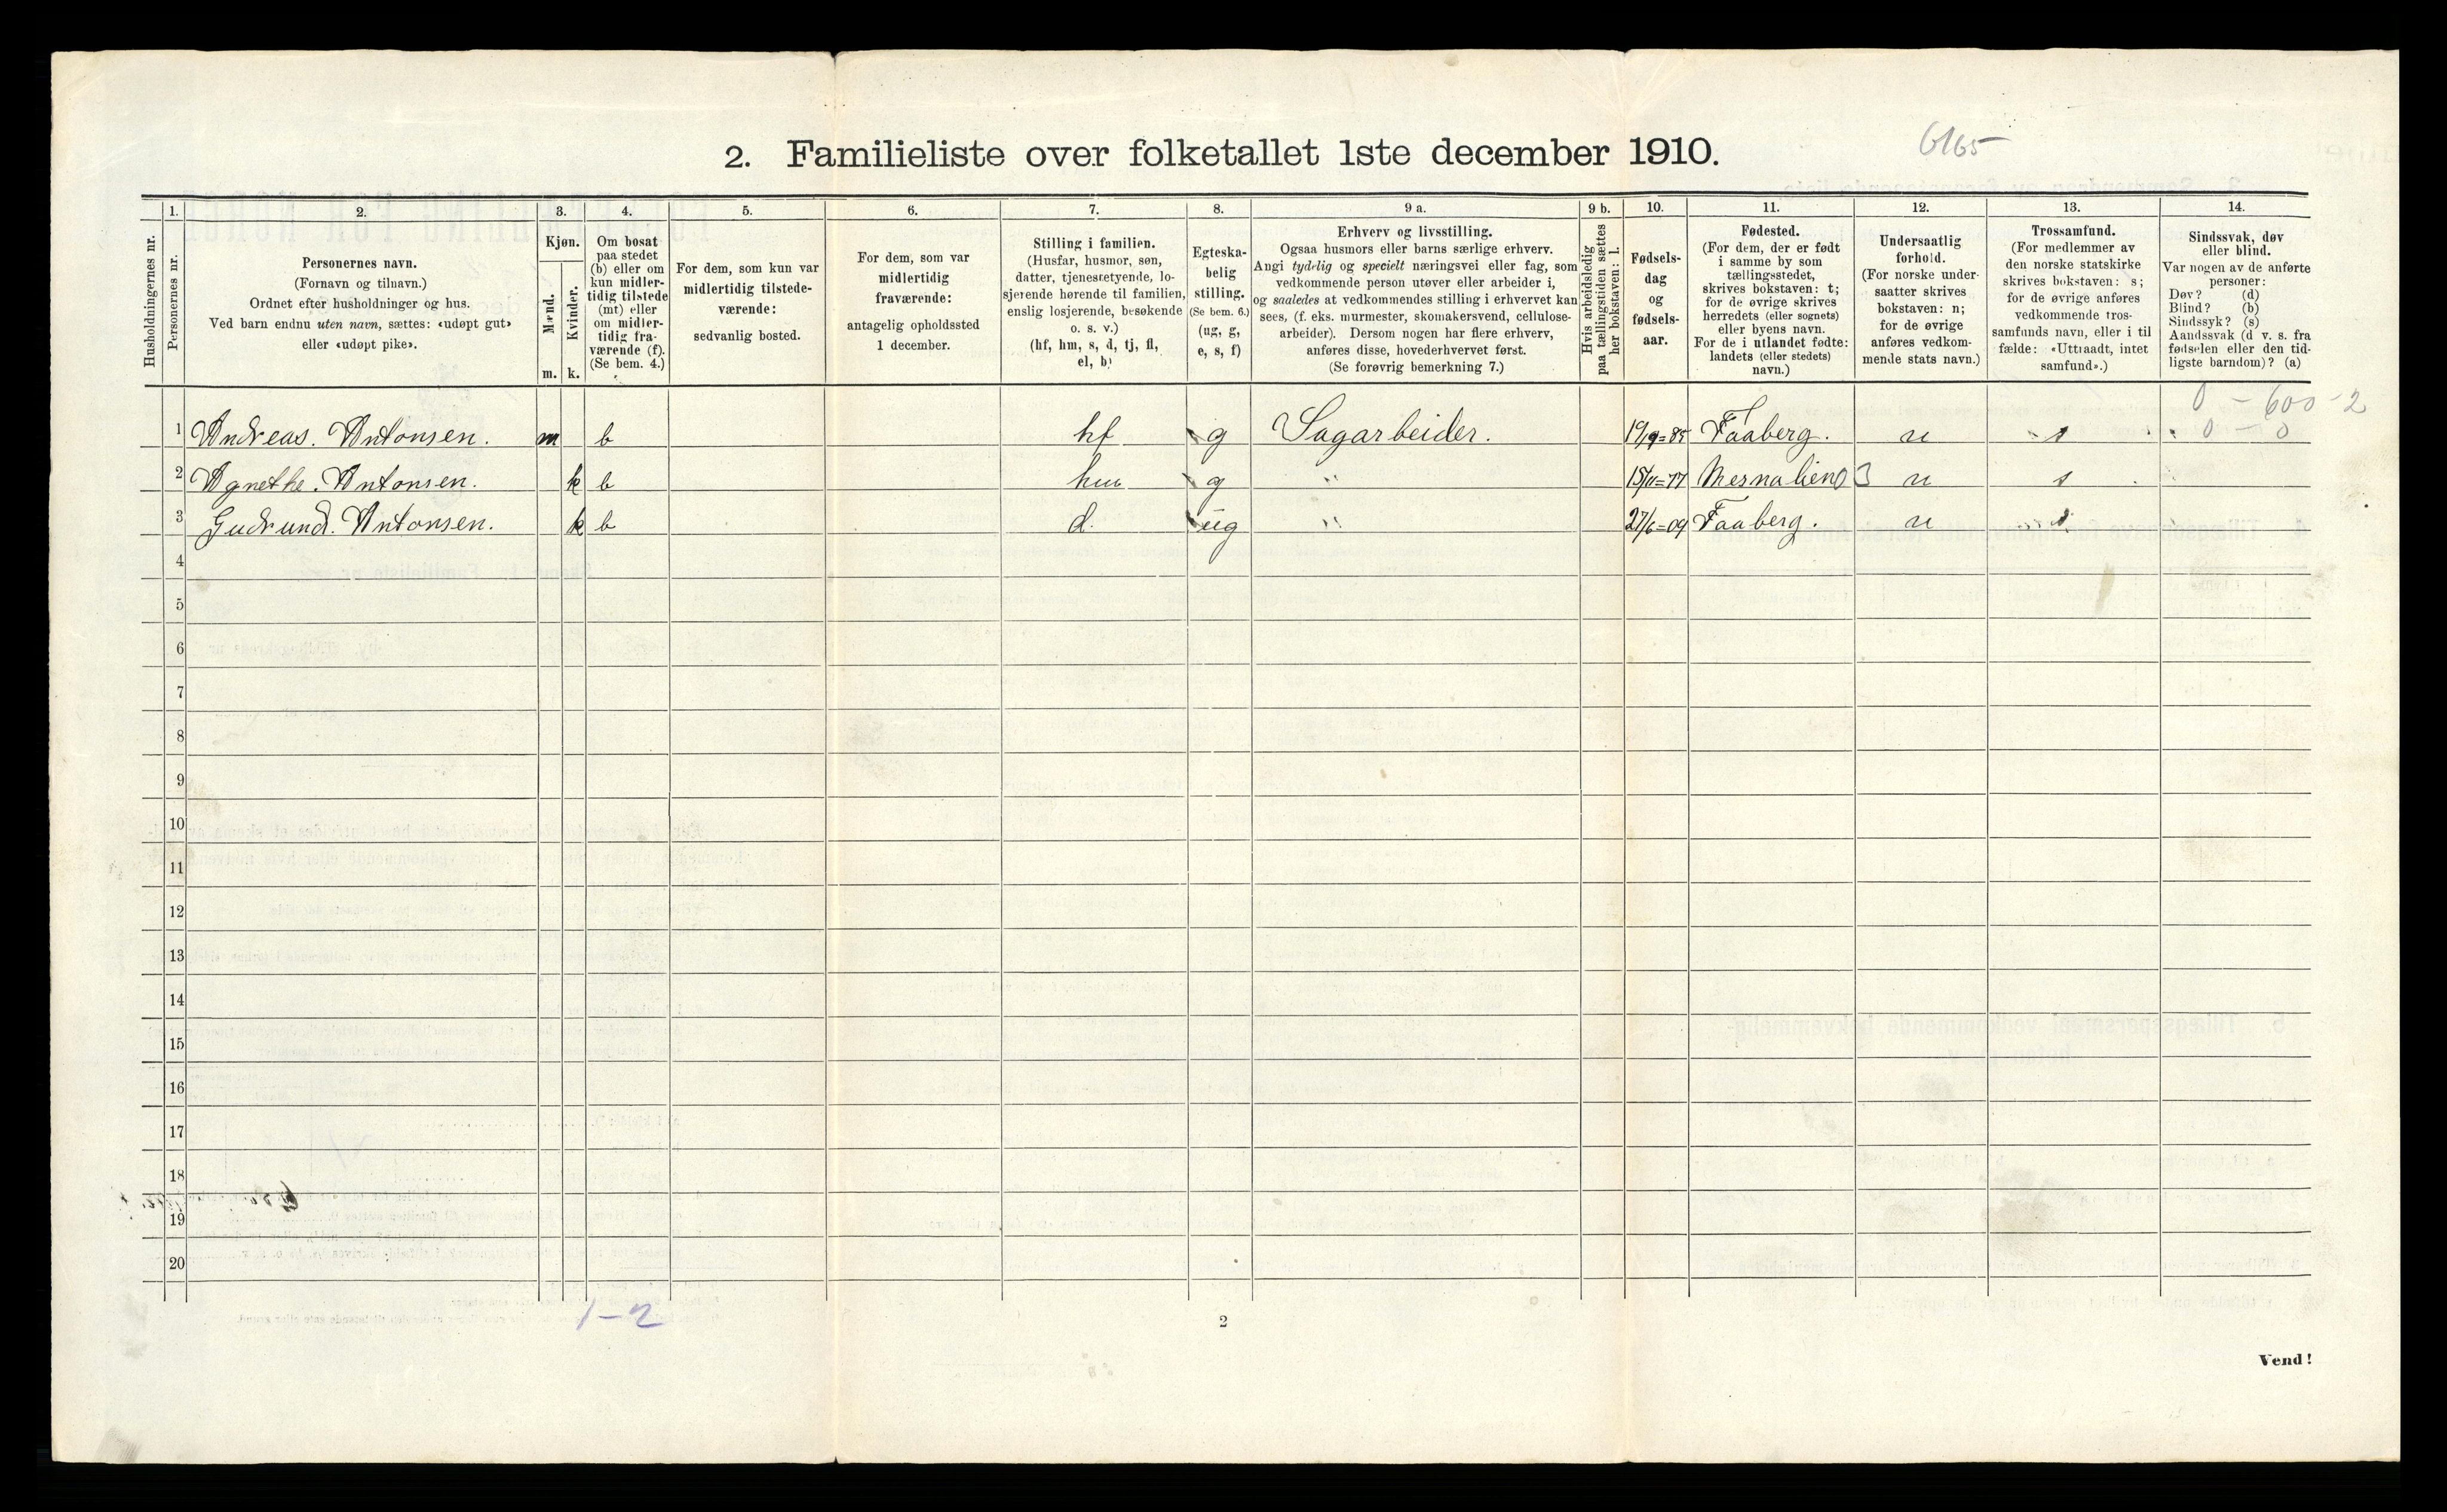 6165
2. Familieliste over folketallet 1ste december 1910.
Husholdningernes nr.
1.
Personernes nr.
2.
Personernes navn.
(Fornavn og tilnavn.)
Ordnet efter husholdninger og hus.
Ved barn endnu uten navn, sættes: «udøpt gut»
eller «udøpt pike».
3.
Kjøn.
Mænd.
Kvinder.
m. k.
4.
Om bosat
paa stedet
(b) eller om
kun midler-
tidig tilstede
(mt) eller
om midler-
tidig fra-
værende (f).
(Se bem. 4.)
5.
For dem, som kun var
midlertidig tilstede-
værende:
sedvanlig bosted.
6.
For dem, som var
midlertidig
fraværende:
antagelig opholdssted
1 december.
7.
Stilling i familien.
(Husfar, husmor, søn,
datter, tjenestetyende, lo-
sjerende hørende til familien,
enslig losjerende, besøkende
o. s. v.)
(hf, hm, s, d, tj, fl,
el, b)
8.
Egteska-
belig
stilling.
(Se bem. 6.)
(ug, g,
e, s, f)
9 a.
Erhverv og livsstilling.
Ogsaa husmors eller barns særlige erhverv.
Angi tydelig og specielt næringsvei eller fag, som
vedkommende person utøver eller arbeider i,
og saaledes at vedkommendes stilling i erhvervet kan
sees, (f. eks. murmester, skomakersvend, cellulose-
arbeider). Dersom nogen har flere erhverv,
anføres disse, hovederhvervet først.
(Se forøvrig bemerkning 7.)
9 b.
Hvis arbeidsledig
paa tællingstiden sættes
her bokstaven: l.
10.
Fødsels-
dag
og
fødsels-
aar.
11.
Fødested.
(For dem, der er født
i samme by som
tællingsstedet,
skrives bokstaven: t;
for de øvrige skrives
herredets (eller sognets)
eller byens navn.
For de i utlandet fødte:
landets (eller stedets)
navn.)
12.
Undersaatlig
forhold.
(For norske under-
saatter skrives
bokstaven: n;
for de øvrige
anføres vedkom-
mende stats navn.)
13.
Trossamfund.
(For medlemmer av
den norske statskirke
skrives bokstaven: s;
for de øvrige anføres
vedkommende tros-
samfunds navn, eller i til
fælde: «Uttraadt, intet
samfund».)
14.
Sindssvak, døv
eller blind.
Var nogen av de anførte
personer:
Døv? (d)
Blind? (b)
Sindssyk? (s)
Aandssvak (d v. s. fra
fødselen eller den tid-
ligste barndom)? (a)
0 - 600 - 2
0 - 0
1 Andreas. Antonsen. m b hf g Sagarbeider. 19/9=85 Faaberg. n s
2 Agnethe. Antonsen. k b hm g " 15/11=77 Mesnalien 03 n s
3 Gudrund. Antonsen. k b d. ug " 27/6=09 Faaberg. n s
4
5
6
7
8
9
10
11
12
13
14
15
16
17
18
19
20
1-2
2
Vend!